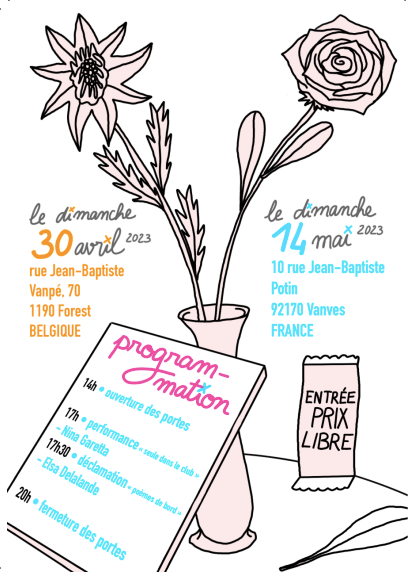 le dimanche
30 avril 2023
rue Jean-Baptiste
Vanpé, 70
1190 Forest
BELGIQUE
le dimanche
14 mai 2023
10 rue Jean-Baptiste
Potin
92170 Vanves
FRANCE
program-
mation
14h • ouverture des portes
17h • performance « seule dans le club »
- Nina Garetta
17h30 • déclamation « poèmes de bord »
- Elsa Delalande
20h • fermeture des portes
ENTRÉE
PRIX
LIBRE